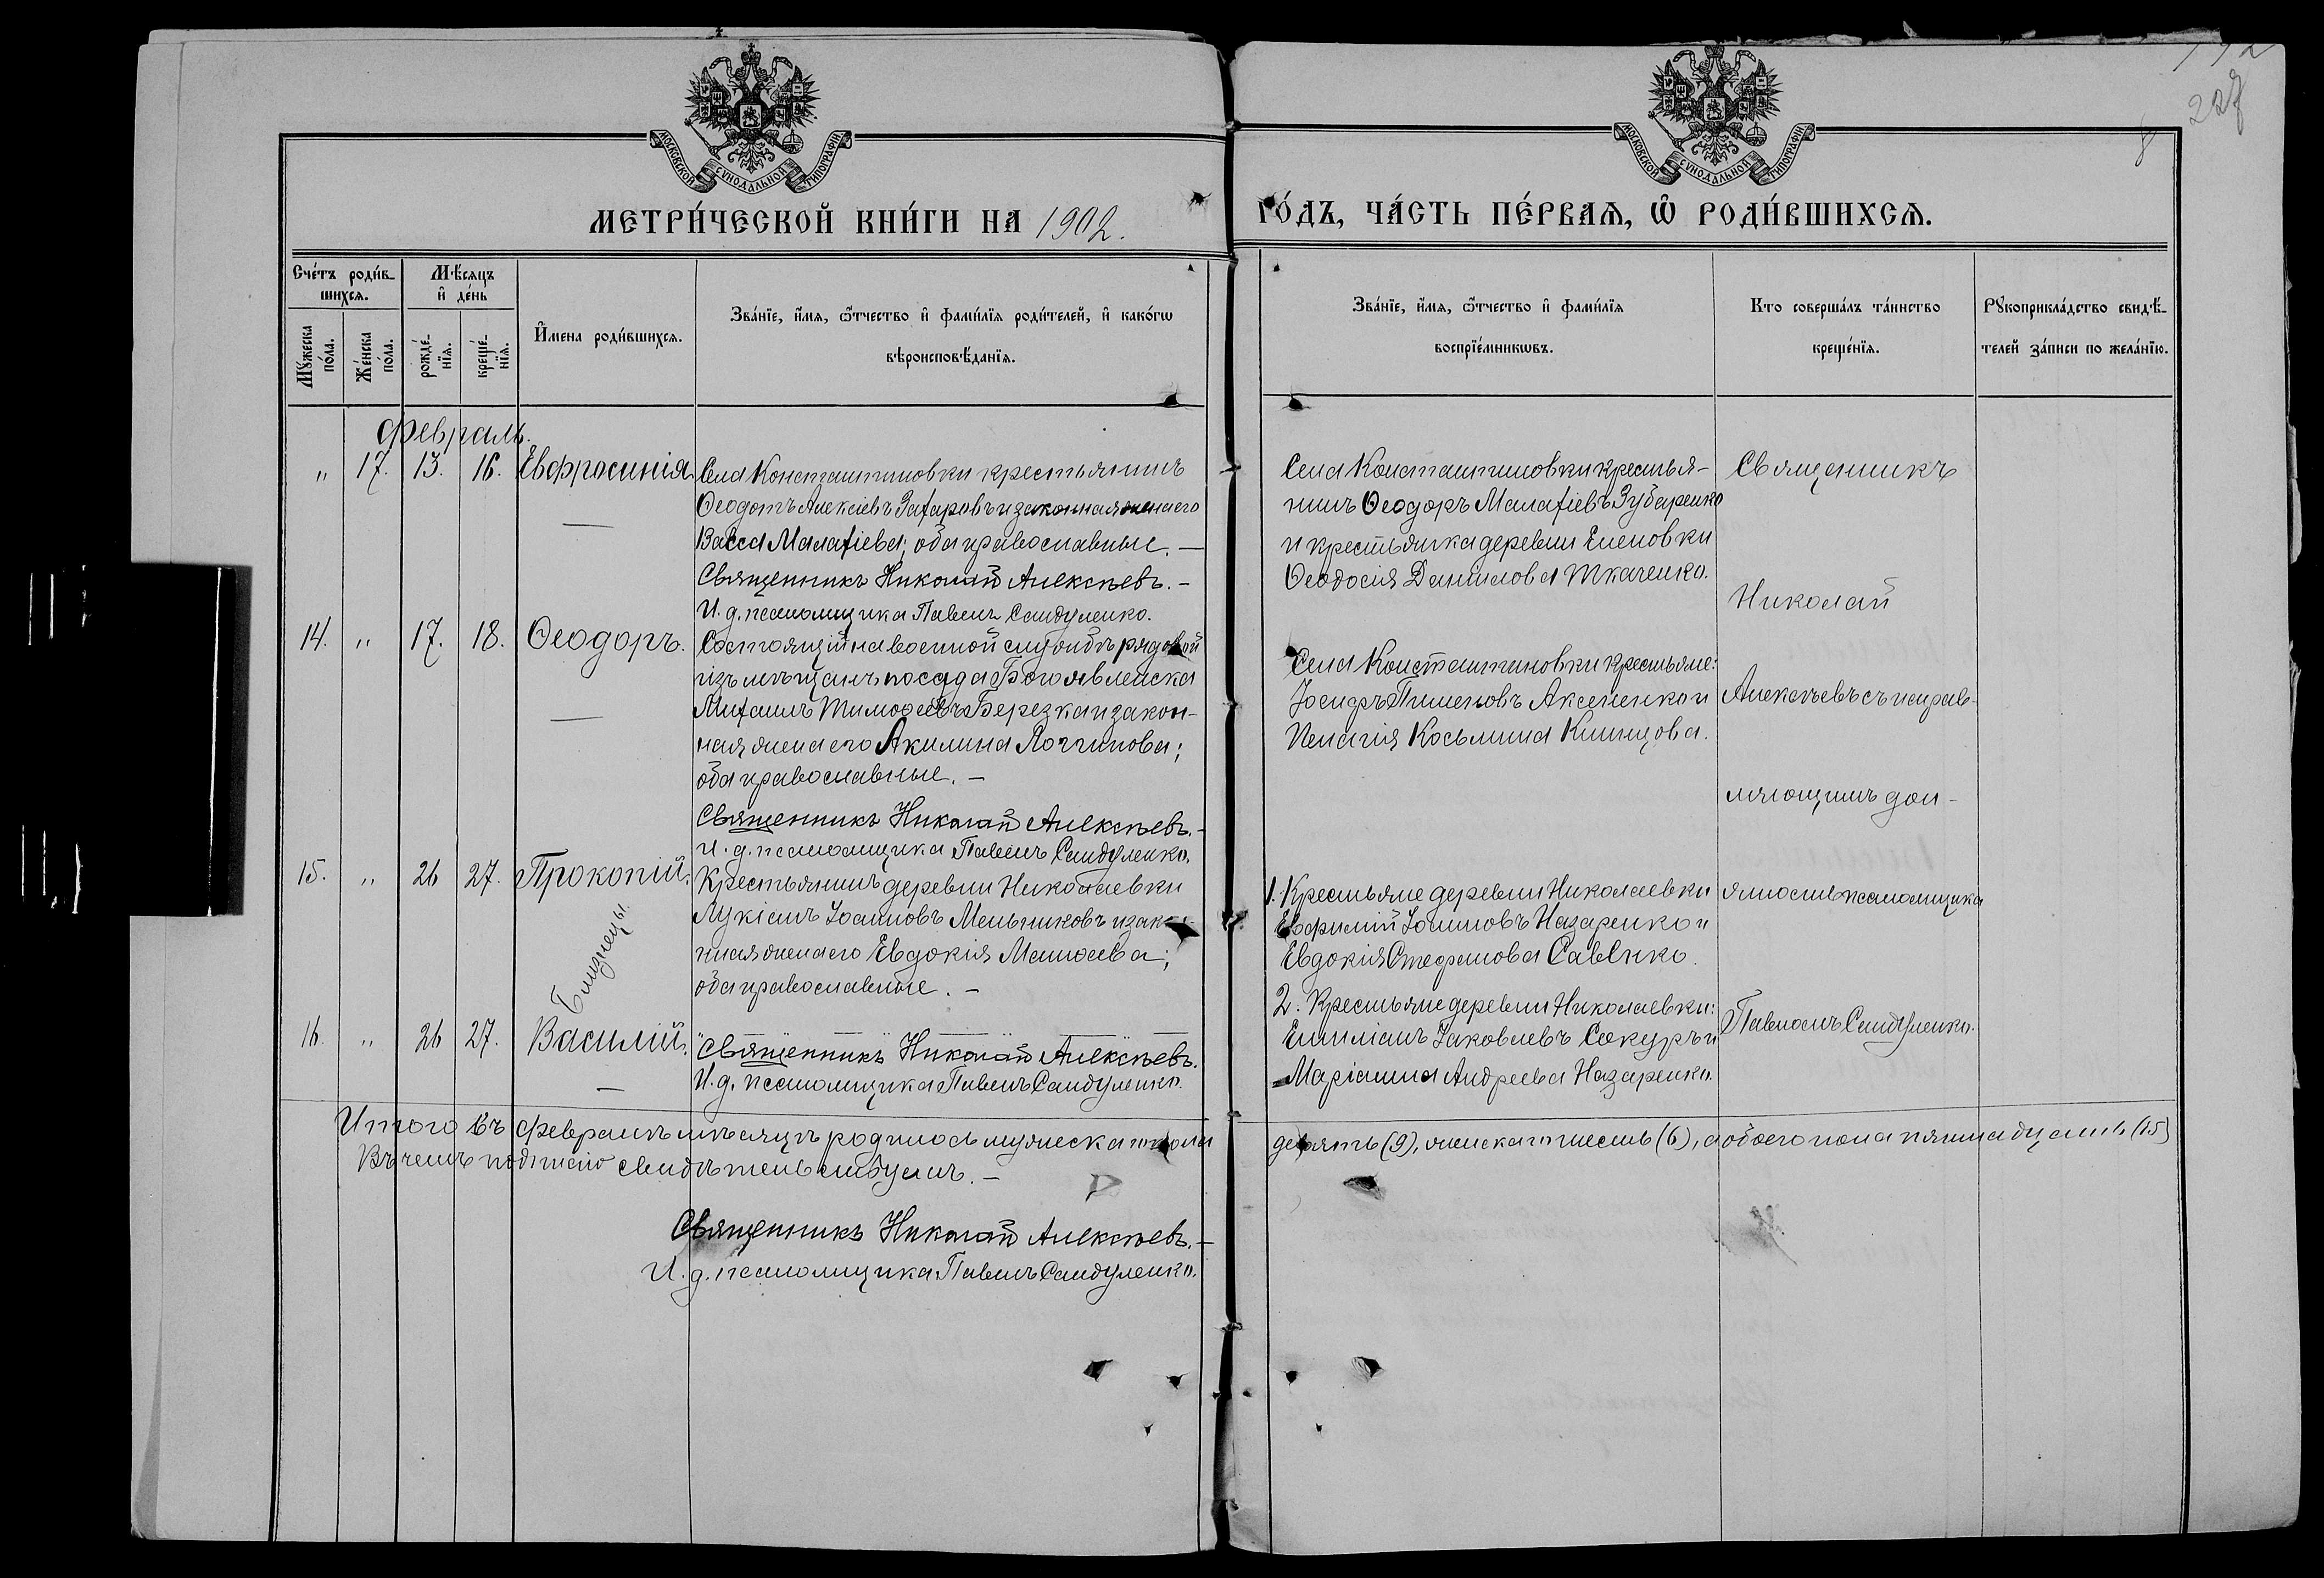 192
227
8
МОСКОВСКОЙ СУНОДАЛЬНОЙ ТИПОГРАФІИ
МОСКОВСКОЙ СУНОДАЛЬНОЙ ТИПОГРАФІИ
МЕТРИ́ЧЕСКОЙ КНИ́ГИ НА 1902. ГО́ДЪ, ЧА́СТЬ ПЕ́РВАѦ, Ѽ РОДИ́ВШИХСѦ.
Сче́тъ роди́в-
шихсѧ.
Мѣ́сѧцъ
и҆ де́нь
Мꙋ́жеска по́ла.
Же́нска по́ла.
рожде́-нїѧ.
креще́-нїѧ.
И҆мена роди́вшихсѧ.
Зва́нїе, и҆́мѧ, ѻ҆́тчество и҆ фами́лїѧ роди́телей, и҆ како́гѡ
вѣроисповѣ́данїѧ.
Зва́нїе, и҆́мѧ, ѻ҆́тчество и҆ фами́лїѧ
воспрїе́мникѡвъ.
Кто соверша́лъ та́инство
креще́нїѧ.
Рꙋкоприкла́дство свидѣ́-
телей за́писи по жела́нїю.
Февраль.
" 17. 13. 16. Евфросинія.
Села Константиновки крестьянинъ
Ѳеодотъ Алексіевъ Захаровъ и законная жена его
Васса Малахіева; оба православные. —
Священникъ Николай Алексѣевъ. —
И. д. псаломщика Павелъ Сандуленко.
Села Константиновки крестья-
нинъ Ѳеодоръ Малахіевъ Зубаренко
и крестьянка деревни Еленовки
Ѳеодосія Даніилова Ткаченко.
14. " 17. 18. Ѳеодоръ.
Состоящій на военной службѣ рядовой
изъ мѣщанъ посада Богоявленска
Михаилъ Тимоѳеевъ Березка и закон-
ная жена его Акилина Логгинова;
оба православные. —
Священникъ Николай Алексѣевъ. —
И. д. псаломщика Павелъ Сандуленко.
Села Константиновки крестьяне:
Іосифъ Пименовъ Аксененко и
Пелагія Косьмина Клинцова.
15. " 26 27. Прокопій.
Близнецы.
Крестьянинъ деревни Николаевки
Лукіанъ Іоанновъ Мельниковъ и зако-
нная жена его Евдокія Моисеева;
оба православные. —
1. Крестьяне деревни Николаевки
Евфимій Іоанновъ Назаренко и
Евдокія Стефанова Савенко.
16. " 26 27. Василій.
Священникъ Николай Алексѣевъ.
И. д. псаломщика Павелъ Сандуленко.
2. Крестьяне деревни Николаевки:
Емиліанъ Іаковлевъ Сокуръ и
Маріанна Андреева Назаренко.
Священникъ
Николай
Алексѣевъ съ исправ-
ляющимъ дол-
жность псаломщика
Павломъ Сандуленко.
Итого въ февралѣ мѣсяцѣ родилось мужеска пола девять (9), женскаго шесть (6), а обоего пола пятнадцать (15)
Въ чемъ подписью свидѣтельствуемъ. —
Священникъ Николай Алексѣевъ. —
И. д. псаломщика Павелъ Сандуленко.